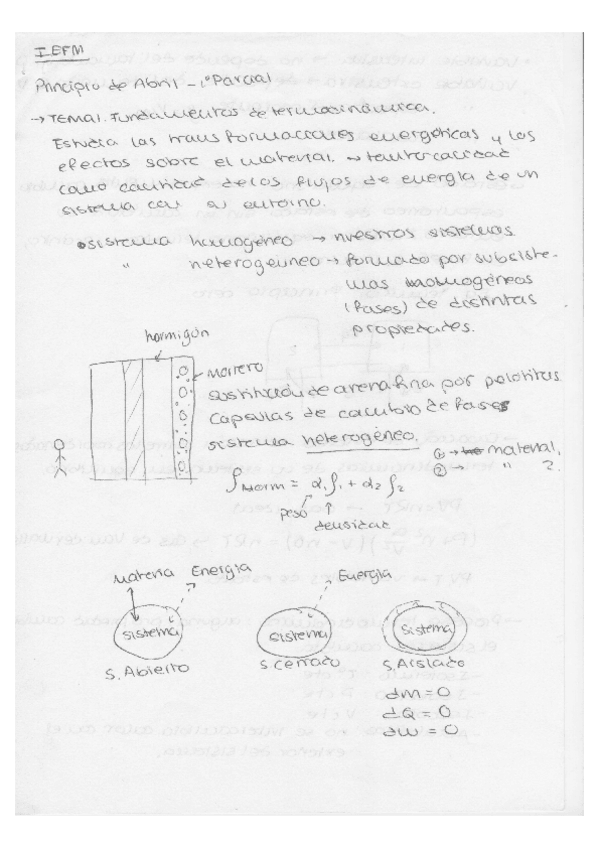 I.EFM
Principio de Abril - 1º Parcial
→ TEMA1. Fundamentos de termodinámica.
Estudia las transformaciones energéticas y los
efectos sobre el material. → tanto calidad
como cantidad de los flujos de energía de un
sistema con su entorno.
• Sistema homogéneo → nuestros sistemas
" heterogéneo → formado por subsiste-
mas homogéneos
(fases) de distintas
propiedades.
hormigón
mortero
sustitución de arena fina por pelotitas
capsulas de cambio de fases
sistema heterogéneo.
① → material 1
② → " 2.
ρ = α₁ρ₁ + α₂ρ₂
peso
densidad
Materia Energía
Energía
Sistema
Sistema
Sistema
S. Abierto
S. Cerrado
S. Aislado
dm = 0
dQ = 0
dW = 0